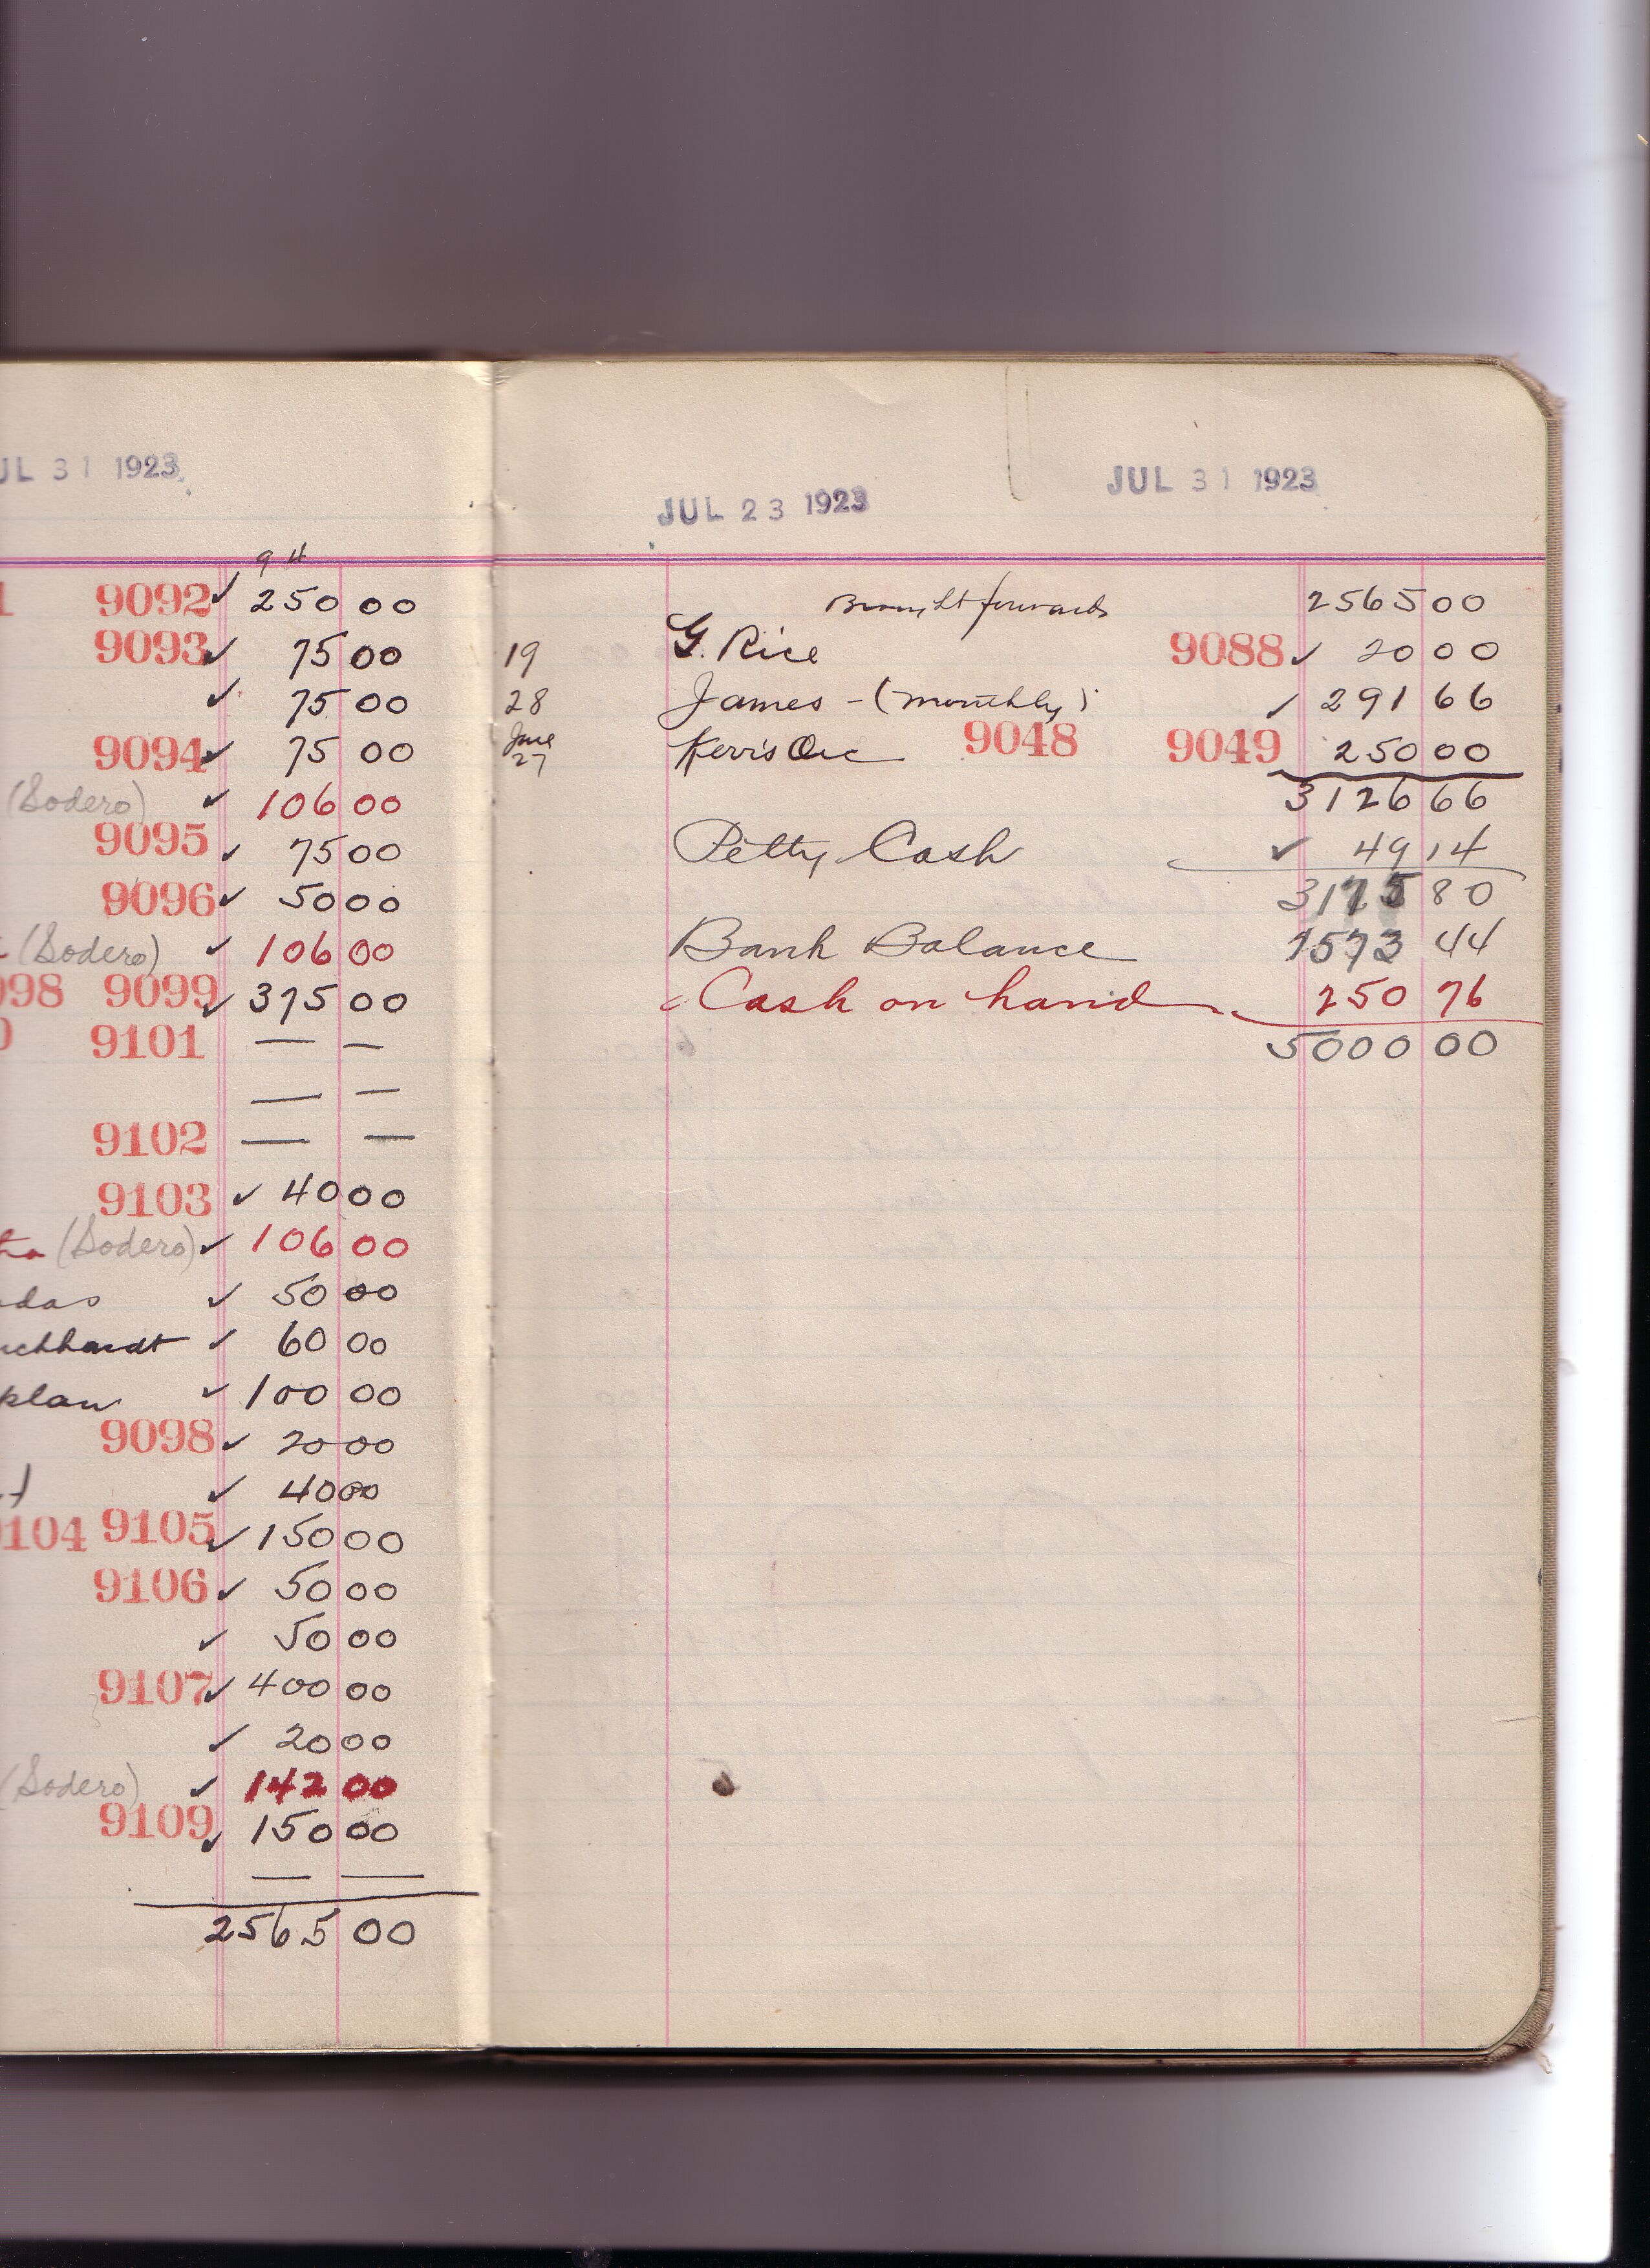 JUL 31 1923
9 11
9092 ✓ 250 00
9093 ✓ 75 00
✓ 75 00
9094 ✓ 75 00
(Sodero) ✓ 106 00
9095 ✓ 75 00
9096 ✓ 50 00
(Sodero) ✓ 106 00
98 9099 ✓ 375 00
9101 — —
— —
9102 — —
9103 ✓ 40 00
(Sodero) ✓ 106 00
✓ 50 00
✓ 60 00
✓ 100 00
9098 ✓ 20 00
✓ 40 00
104 9105 ✓ 150 00
9106 ✓ 50 00
✓ 50 00
9107 ✓ 400 00
✓ 20 00
(Sodero) ✓ 142 00
9109 ✓ 150 00
— —
2565 00
JUL 23 1923 JUL 31 1923
Brought forwards 2565 00
19 G. Rice 9088 ✓ 20 00
28 James - (monthly) ✓ 291 66
June 27 Kerr's Orc 9048 9049 250 00
3126 66
Petty Cash ✓ 49 14
3175 80
Bank Balance 1573 44
Cash on hand 250 76
5000 00